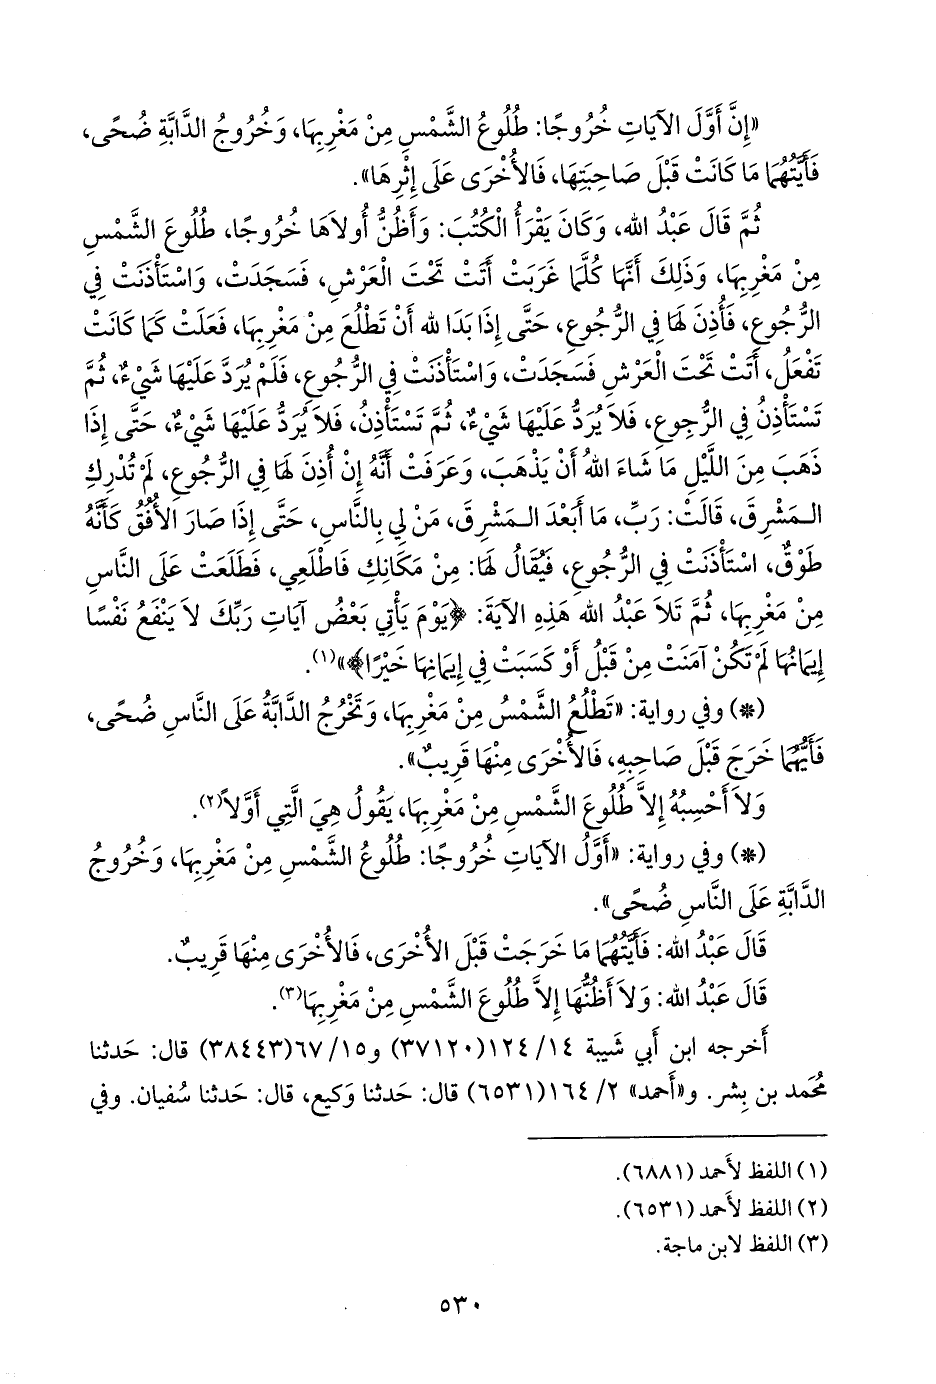 «إِنَّ أَوَّلَ الآيَاتِ خُرُوجًا: طُلُوعُ الشَّمْسِ مِنْ مَغْرِبِهَا، وَخُرُوجُ الدَّابَّةِ ضُحًى،
فَأَيَّتُهُمَا مَا كَانَتْ قَبْلَ صَاحِبَتِهَا، فَالأُخْرَى عَلَى إِثْرِهَا».
ثُمَّ قَالَ عَبْدُ الله، وَكَانَ يَقْرَأُ الْكُتُبَ: وَأَظُنُّ أُولاَهَا خُرُوجًا، طُلُوعَ الشَّمْسِ
مِنْ مَغْرِبِهَا، وَذَلِكَ أَنَّهَا كُلَّمَا غَرَبَتْ أَتَتْ تَحْتَ الْعَرْشِ، فَسَجَدَتْ، وَاسْتَأْذَنَتْ فِي
الرُّجُوعِ، فَأُذِنَ لَهَا فِي الرُّجُوعِ، حَتَّى إِذَا بَدَا لله أَنْ تَطْلُعَ مِنْ مَغْرِبِهَا، فَعَلَتْ كَمَا كَانَتْ
تَفْعَلُ، أَتَتْ تَحْتَ الْعَرْشِ فَسَجَدَتْ، وَاسْتَأْذَنَتْ فِي الرُّجُوعِ، فَلَمْ يُرَدَّ عَلَيْهَا شَيْءٌ، ثُمَّ
تَسْتَأْذِنُ فِي الرُّجُوعِ، فَلاَ يُرَدُّ عَلَيْهَا شَيْءٌ، ثُمَّ تَسْتَأْذِنُ، فَلاَ يُرَدُّ عَلَيْهَا شَيْءٌ، حَتَّى إِذَا
ذَهَبَ مِنَ اللَّيْلِ مَا شَاءَ اللهُ أَنْ يَذْهَبَ، وَعَرَفَتْ أَنَّهُ إِنْ أُذِنَ لَهَا فِي الرُّجُوعِ، لَمْ تُدْرِكِ
الـمَشْرِقَ، قَالَتْ: رَبِّ، مَا أَبْعَدَ الـمَشْرِقَ، مَنْ لِي بِالنَّاسِ، حَتَّى إِذَا صَارَ الأُفُقُ كَأَنَّهُ
طَوْقٌ، اسْتَأْذَنَتْ فِي الرُّجُوعِ، فَيُقَالُ لَهَا: مِنْ مَكَانِكِ فَاطْلَعِي، فَطَلَعَتْ عَلَى النَّاسِ
مِنْ مَغْرِبِهَا، ثُمَّ تَلاَ عَبْدُ الله هَذِهِ الآيَةَ: ﴿يَوْمَ يَأْتِي بَعْضُ آيَاتِ رَبِّكَ لاَ يَنْفَعُ نَفْسًا
إِيمَانُهَا لَمْ تَكُنْ آمَنَتْ مِنْ قَبْلُ أَوْ كَسَبَتْ فِي إِيمَانِهَا خَيْرًا﴾»(١).
(*) وفي رواية: «تَطْلُعُ الشَّمْسُ مِنْ مَغْرِبِهَا، وَتَخْرُجُ الدَّابَّةُ عَلَى النَّاسِ ضُحًى،
فَأَيُّهُمَا خَرَجَ قَبْلَ صَاحِبِهِ، فَالأُخْرَى مِنْهَا قَرِيبٌ».
وَلاَ أَحْسِبُهُ إِلاَّ طُلُوعَ الشَّمْسِ مِنْ مَغْرِبِهَا، يَقُولُ هِيَ الَّتِي أَوَّلاً(٢).
(*) وفي رواية: «أَوَّلُ الآيَاتِ خُرُوجًا: طُلُوعُ الشَّمْسِ مِنْ مَغْرِبِهَا، وَخُرُوجُ
الدَّابَّةِ عَلَى النَّاسِ ضُحًى».
قَالَ عَبْدُ الله: فَأَيَّتُهُمَا مَا خَرَجَتْ قَبْلَ الأُخْرَى، فَالأُخْرَى مِنْهَا قَرِيبٌ.
قَالَ عَبْدُ الله: وَلاَ أَظُنُّهَا إِلاَّ طُلُوعَ الشَّمْسِ مِنْ مَغْرِبِهَا(٣).
أَخرجه ابن أَبي شَيبة ١٤/ ١٢٤(٣٧١٢٠) و١٥/ ٦٧(٣٨٤٤٣) قال: حَدثنا
مُحَمد بن بِشر. و«أَحمد» ٢/ ١٦٤(٦٥٣١) قال: حَدثنا وَكيع، قال: حَدثنا سُفيان. وفي
(١) اللفظ لأَحمد (٦٨٨١).
(٢) اللفظ لأَحمد (٦٥٣١).
(٣) اللفظ لابن ماجة.
٥٣٠